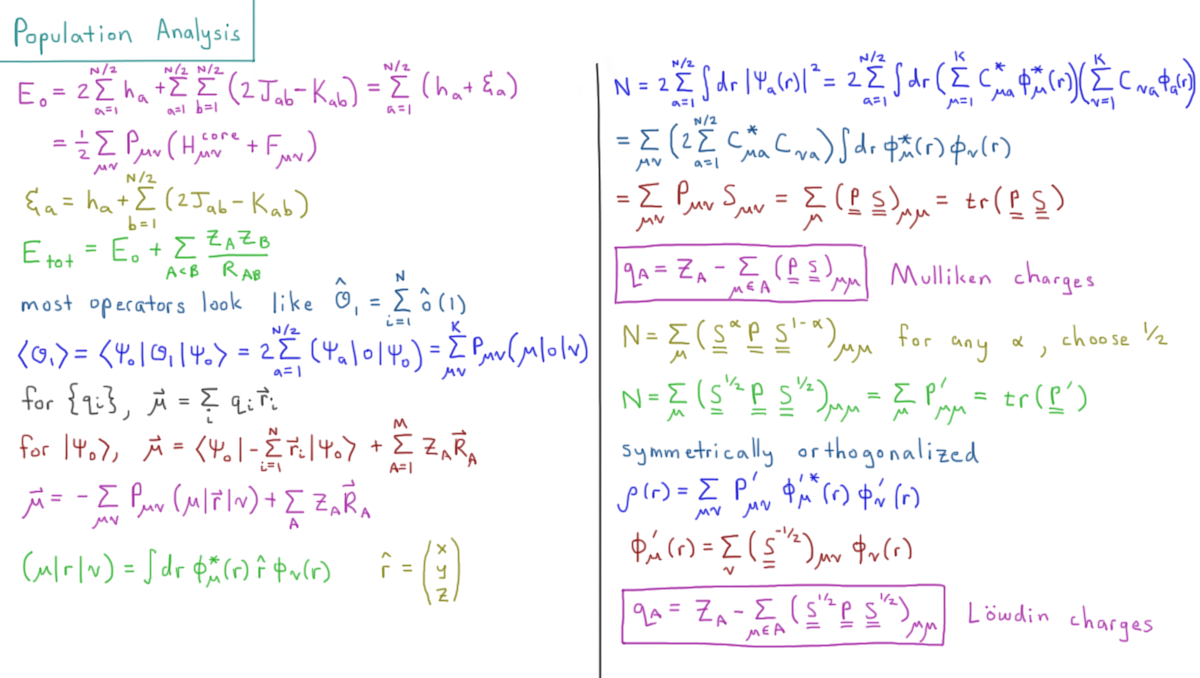 Population Analysis
E₀ = 2 Σ_{a=1}^{N/2} h_a + Σ_{a=1}^{N/2} Σ_{b=1}^{N/2} (2J_{ab} - K_{ab}) = Σ_{a=1}^{N/2} (h_a + ξ_a)
= ½ Σ_{μν} P_{μν} (H_{μν}^{core} + F_{μν})
ξ_a = h_a + Σ_{b=1}^{N/2} (2J_{ab} - K_{ab})
E_{tot} = E₀ + Σ_{A<B} Z_A Z_B / R_{AB}
most operators look like Ô₁ = Σ_{i=1}^{N} ô(1)
⟨O₁⟩ = ⟨Ψ₀|O₁|Ψ₀⟩ = 2 Σ_{a=1}^{N/2} (Ψ_a|o|Ψ₀) = Σ_{μν}^{K} P_{μν} (μ|o|ν)
for {q_i}, μ⃗ = Σ_i q_i r⃗_i
for |Ψ₀⟩, μ⃗ = ⟨Ψ₀| - Σ_{i=1}^{N} r⃗_i |Ψ₀⟩ + Σ_{A=1}^{M} Z_A R⃗_A
μ⃗ = - Σ_{μν} P_{μν} (μ|r⃗|ν) + Σ_A Z_A R⃗_A
(μ|r|ν) = ∫dr φ_μ^*(r) r̂ φ_ν(r) r̂ = (x y z)
N = 2 Σ_{a=1}^{N/2} ∫dr |Ψ_a(r)|² = 2 Σ_{a=1}^{N/2} ∫dr (Σ_{μ=1}^{K} C_{μa}^* φ_μ^*(r)) (Σ_{ν=1}^{K} C_{νa} φ_a(r))
= Σ_{μν} (2 Σ_{a=1}^{N/2} C_{μa}^* C_{νa}) ∫dr φ_μ^*(r) φ_ν(r)
= Σ_{μν} P_{μν} S_{μν} = Σ_μ (P S)_{μμ} = tr(P S)
q_A = Z_A - Σ_{μ∈A} (P S)_{μμ} Mulliken charges
N = Σ_μ (S^α P S^{1-α})_{μμ} for any α, choose ½
N = Σ_μ (S^{1/2} P S^{1/2})_{μμ} = Σ_μ P'_{μμ} = tr(P')
symmetrically orthogonalized
ρ(r) = Σ_{μν} P'_{μν} φ'_μ^*(r) φ'_ν(r)
φ'_μ(r) = Σ_ν (S^{-1/2})_{μν} φ_ν(r)
q_A = Z_A - Σ_{μ∈A} (S^{1/2} P S^{1/2})_{μμ} Löwdin charges